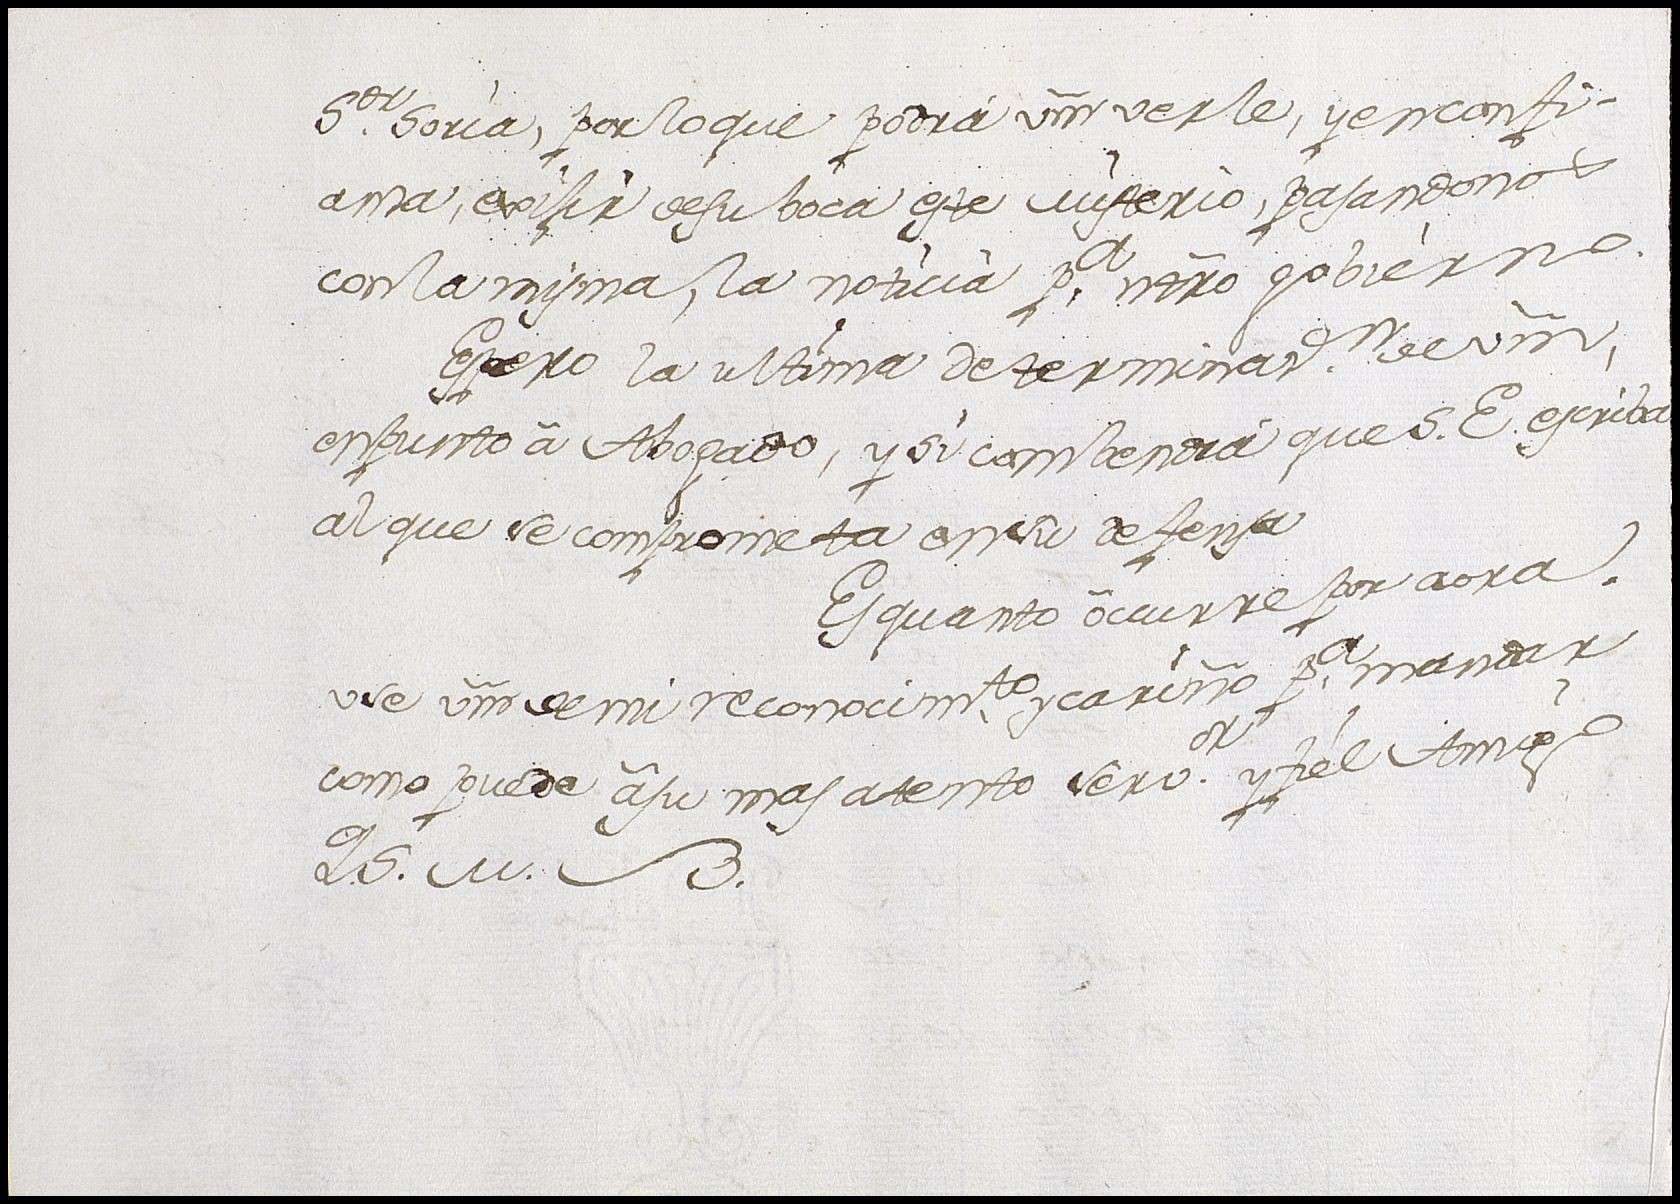 S.or Soria, por lo que podrá vm̃ verle, y en confi-
anza, exijir de su boca este misterio, pasandonos
con la misma, la noticia p.a ntr̃o gobierno.
Espero la ultima determinaz.n de vm̃,
en punto â Abogado, y si combendrá que S. E. escriba
al que se comprometa en su defensa
Es quanto ôcurre por aora.
vse vm̃ de mi reconocim.to y cariño p.a mandar
como puede â su mas atento serv.or y fiel Amigo
Q. S. M. B.